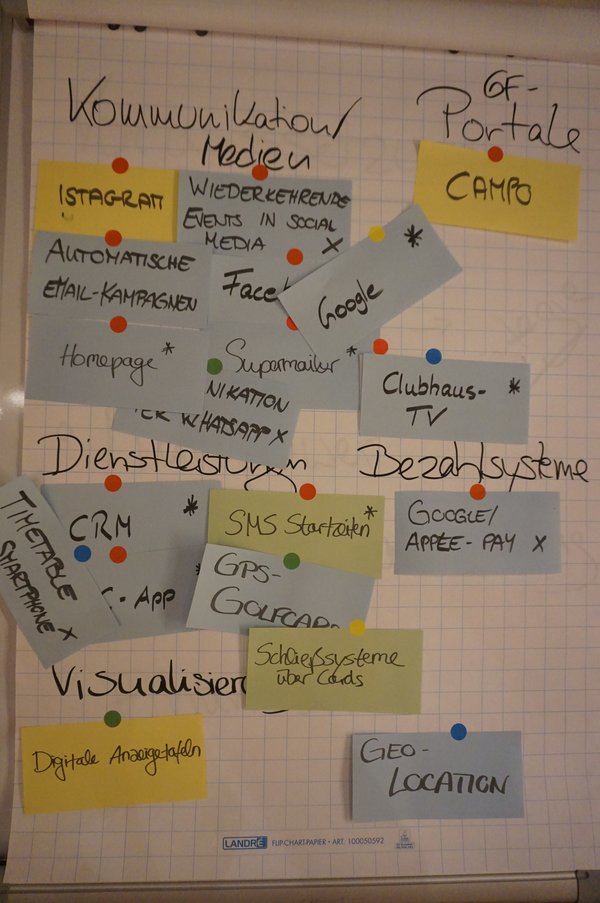 Kommunikation/
Medien
GF-
Portale
ISTAGRAM
WIEDERKEHRENDE
EVENTS IN SOCIAL
MEDIA X
CAMPO
AUTOMATISCHE
EMAIL-KAMPAGNEN
Face
Google *
Homepage *
Supermailer *
NIKATION
WHATSAPP X
Clubhaus- *
TV
Dienstleistungen
Bezahlsysteme
TIMETABLE
SMARTPHONE X
CRM *
- APP
SMS Startzeiten *
GPS-
GOLFCAR
GOOGLE/
APPLE-PAY X
Schließsysteme
über Cards
Visualisier
Digitale Anzeigetafeln
GEO-
LOCATION
LANDRÉ FLIP-CHART-PAPIER • ART. 100050592